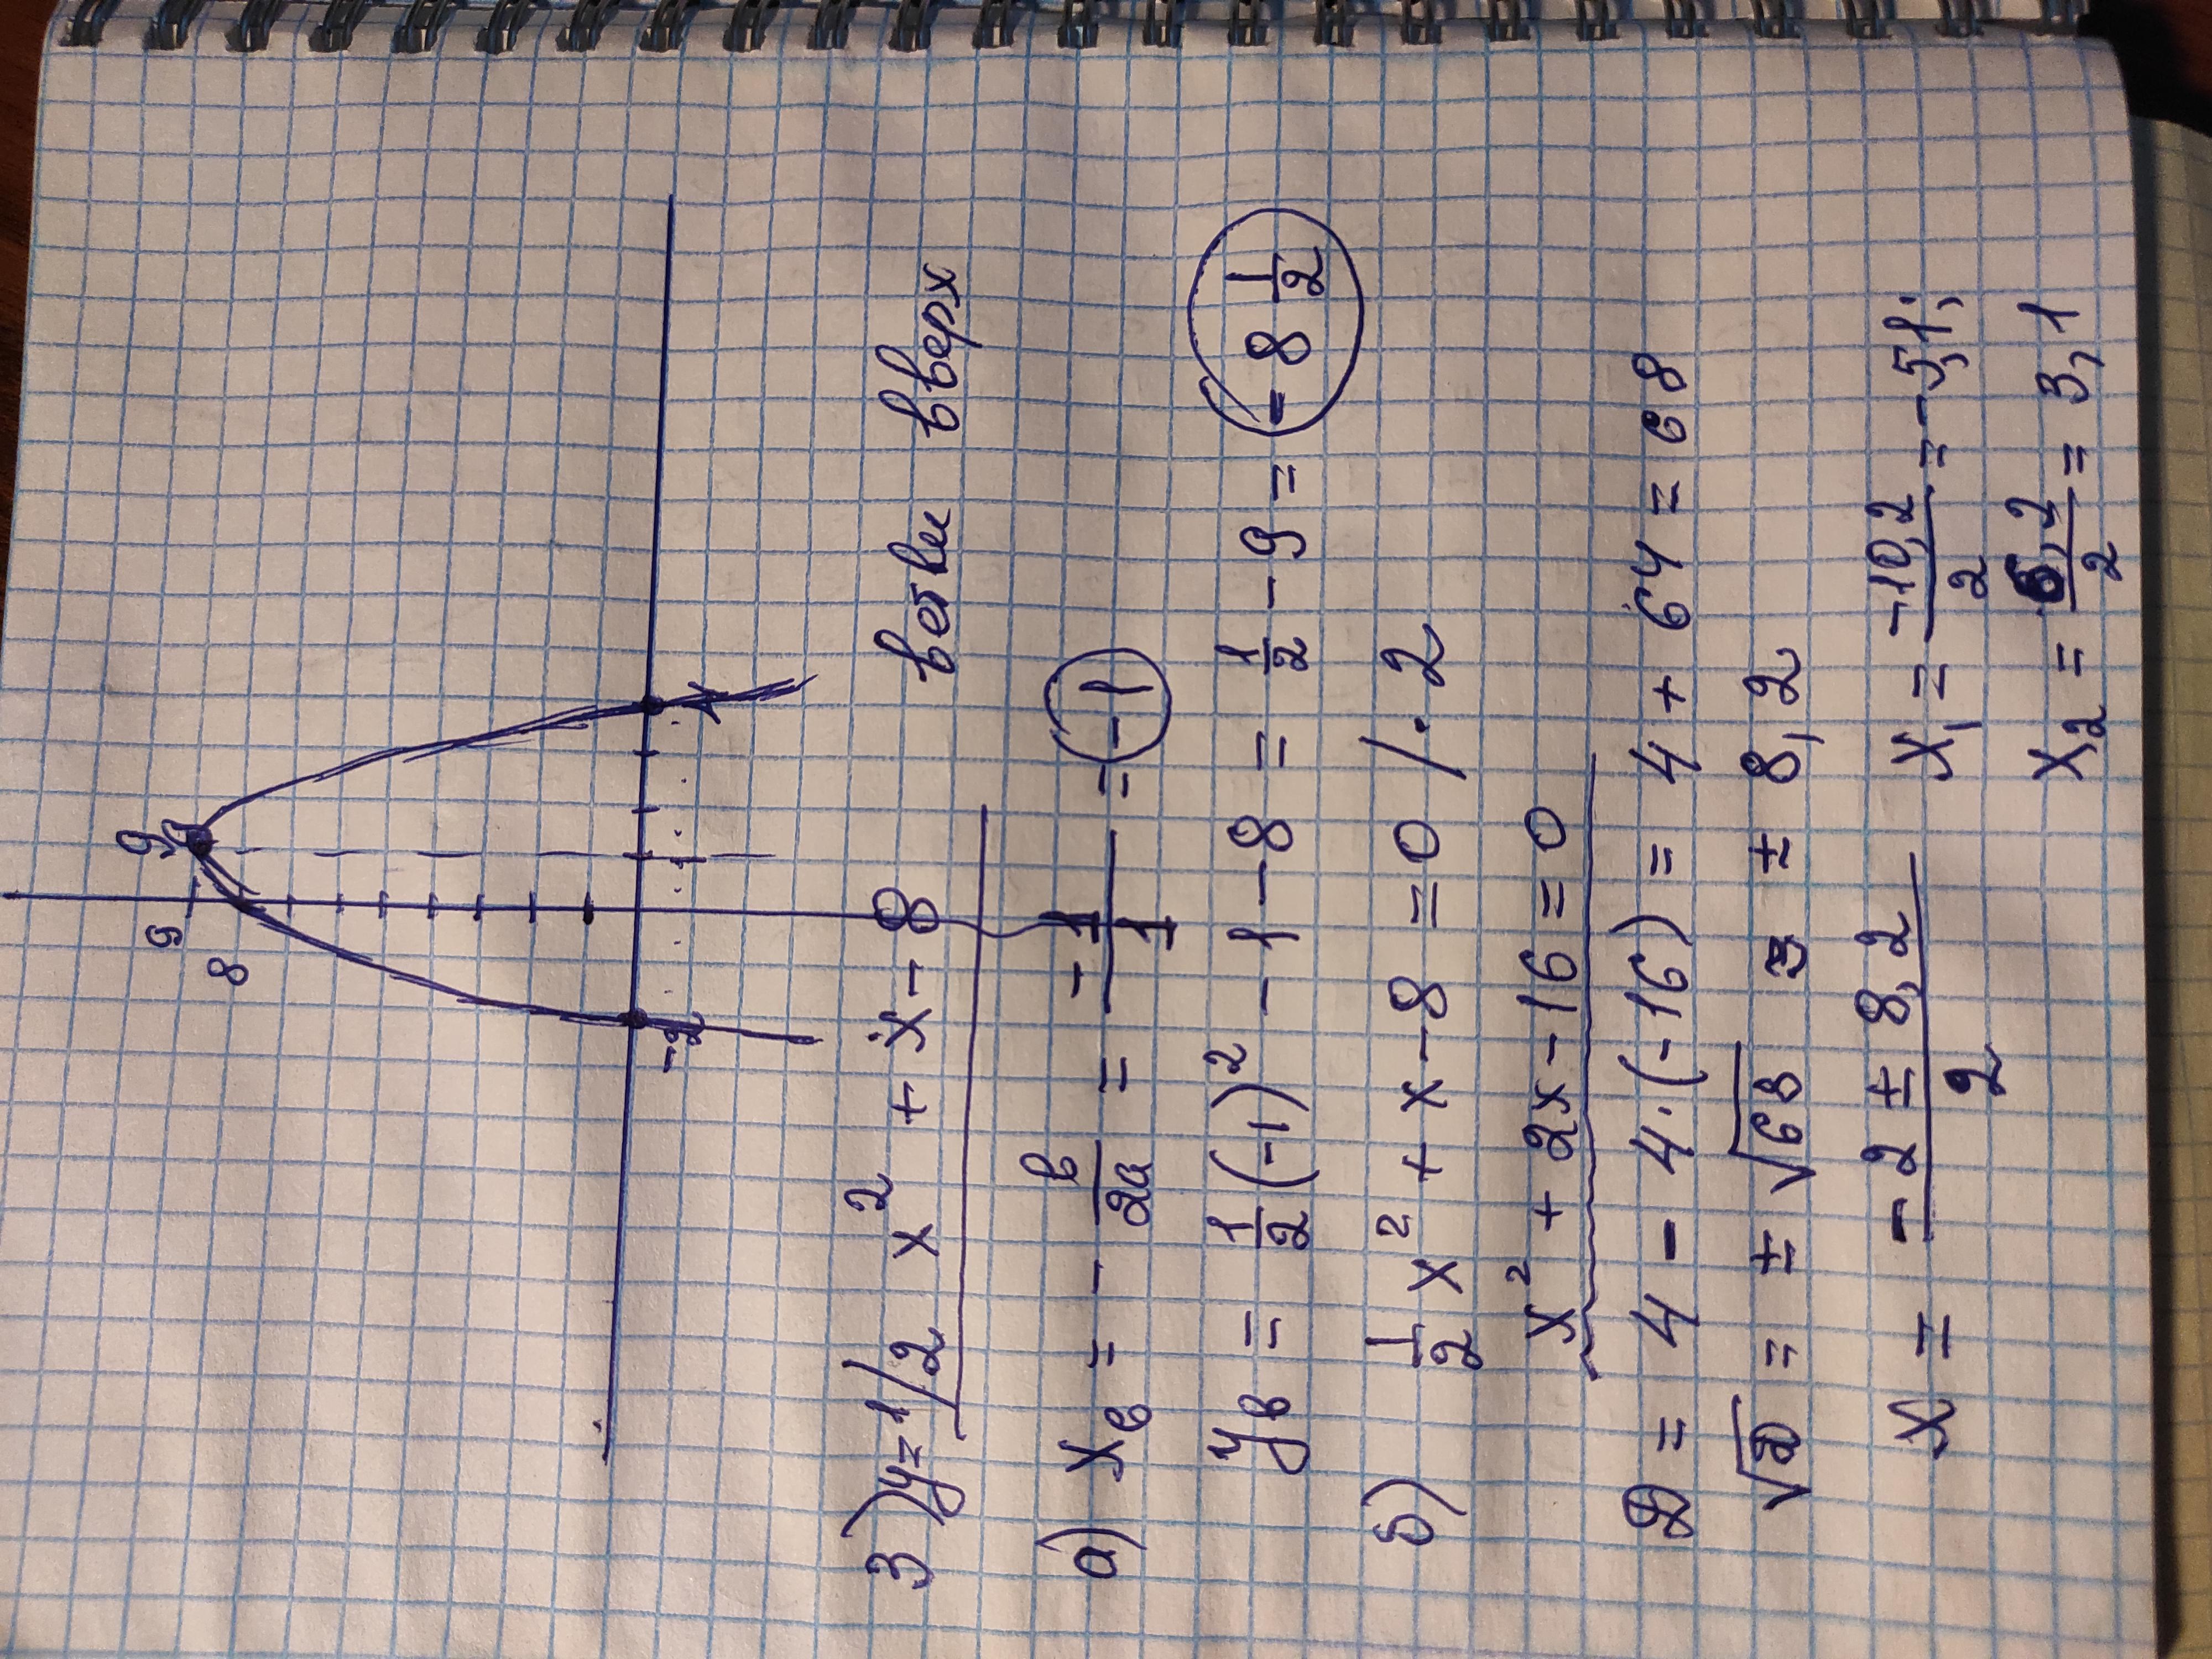 9
9
8
-2
1
4
3) y = 1/2 x² + x - 8 ветви вверх
а) xв = - в/2а = - 1/1 = -1
yв = 1/2 (-1)² - 1 - 8 = 1/2 - 9 = -8 1/2
б) 1/2 x² + x - 8 = 0 / · 2
x² + 2x - 16 = 0
D = 4 - 4·(-16) = 4 + 64 = 68
√D = ± √68 ≈ ± 8,2
x = -2 ± 8,2 / 2 x₁ = -10,2/2 = -5,1;
x₂ = 6,2/2 = 3,1